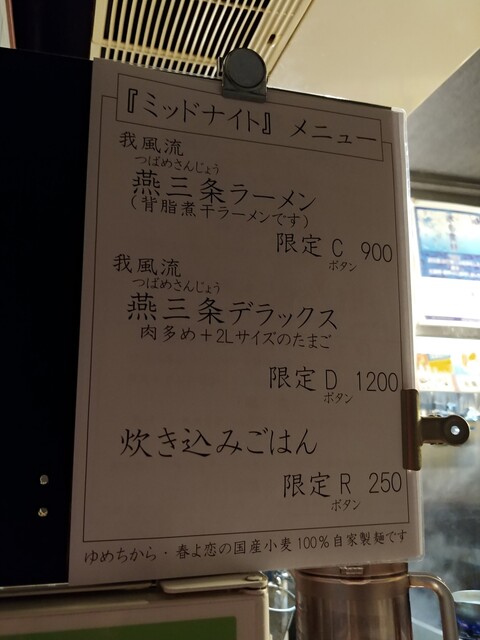 『ミッドナイト』 メニュー
我風流
つばめさんじょう
燕三条ラーメン
(背脂煮干ラーメンです)
限定 C 900
ボタン
我風流
つばめさんじょう
燕三条デラックス
肉多め+2Lサイズのたまご
限定 D 1200
ボタン
炊き込みごはん
限定 R 250
ボタン
ゆめちから・春よ恋の国産小麦100%自家製麺です